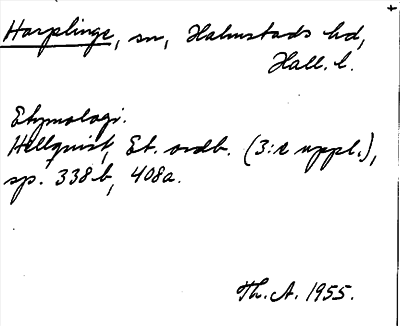 Harplinge, sn, Halmstads hd,
Hall. l.
Etymologi.
Hellquist, Et. ordb. (3:e uppl.),
sp. 338b, 408a.
Th. A. 1955.